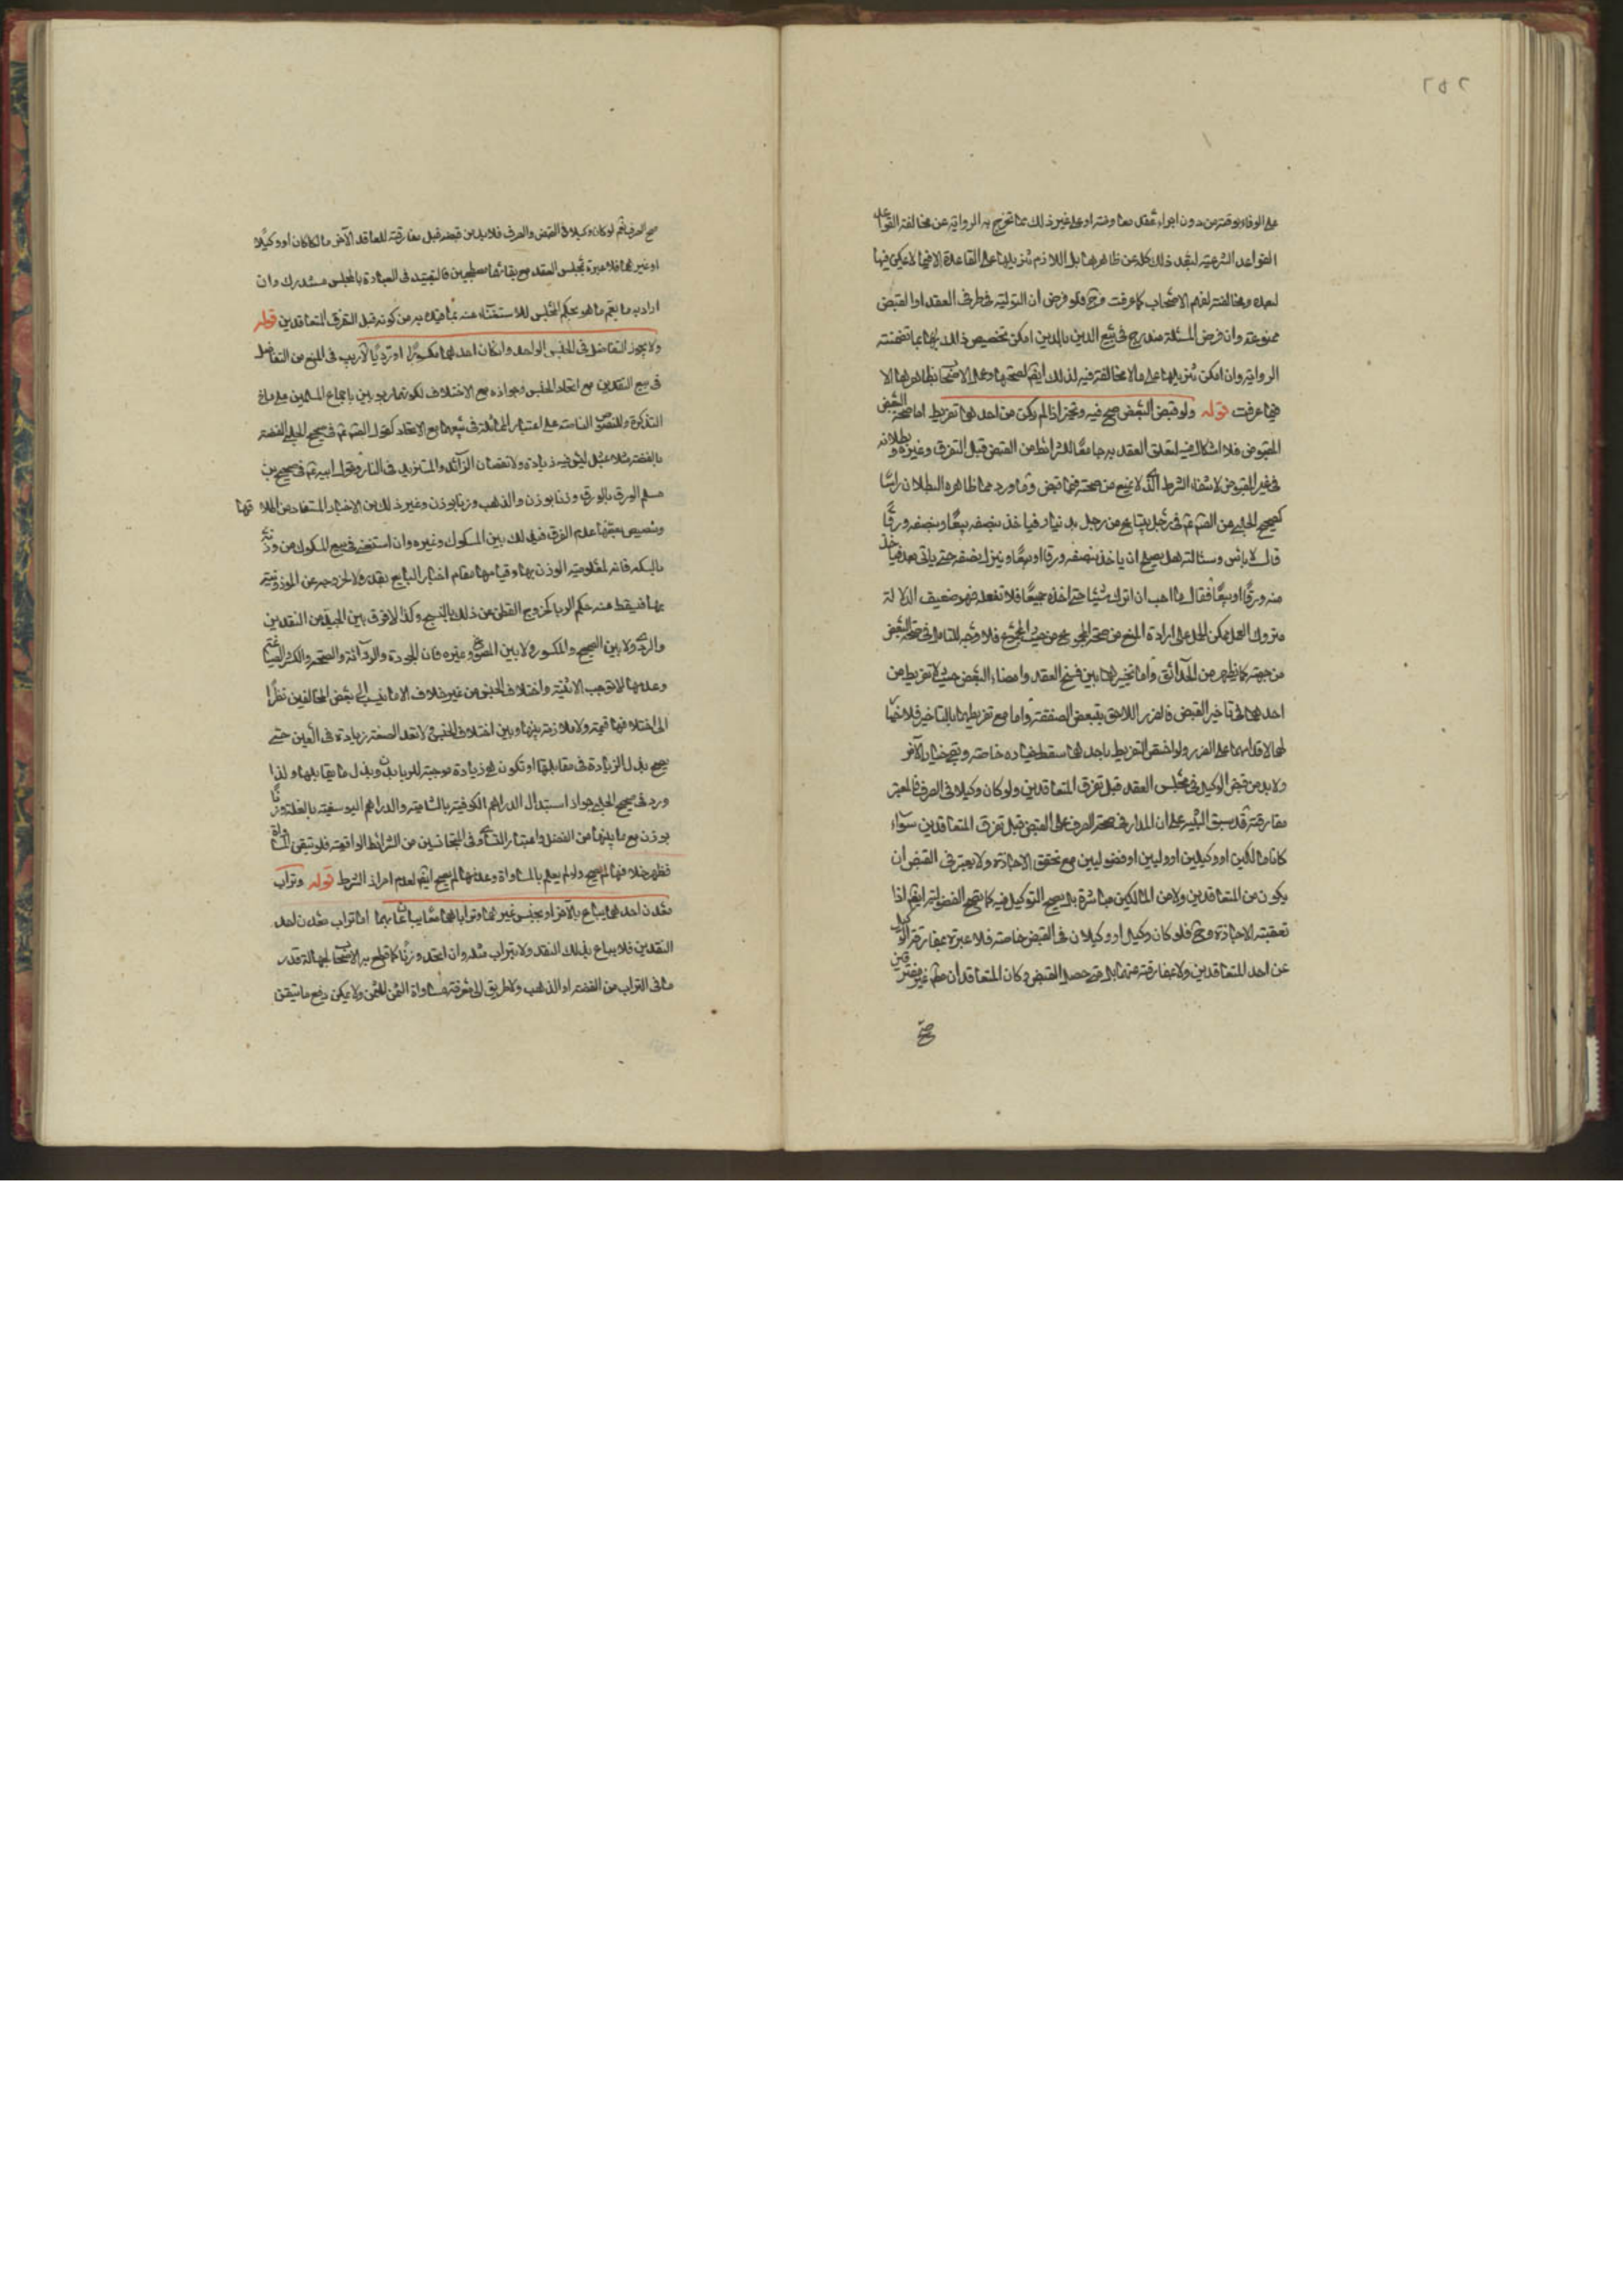 ٢٥٢
على الوفاء بوقته من دون اجراء عقد معاوضة او على غير ذلك مما تخرج به الرواية عن مخالفة القواعد
القواعد الشرعية لبعد ذلك كله عن ظاهرها بل اللازم تنزيلها على القاعدة الا فيما لا يمكن فيها
لبعده ومخالفته لفهم الاصحاب كما عرفت وح فلو فرض ان التولية في طرفي العقد او القبض
ممنوعة وان فرض المسئلة مندرج في بيع الدين بالدين امكن تخصيص ذلك بما تضمنته
الرواية وان امكن تنزيلها على ما لا مخالفة فيه لذلك ايضا لصحتها وعمل الاصحاب بظاهرها الا
فيما عرفت قوله ولو قبض البعض صح فيه وتخير اذا لم يكن من احدهما تفريط اما صحة البعض
المقبوض فلا اشكال فيه لتعلق العقد به جامعا للشرائط من القبض قبل التفرق وغيره وبطلانه
في غير المقبوض لانتفاء الشرط الذي لا يمنع من صحته فيما قبض وما ورد مما ظاهره البطلان راسا
كصحيح الحلبي عن الصم عم في رجل يبتاع من رجل بدينار فياخذ بنصفه بيعا وبنصفه ورقا
قال لا باس وسئالته هل يصلح ان ياخذ بنصفه ورقا او بيعا وينزل نصفه حتى ياتي بعد فياخذ
منه ورقا او بيعا فقال ما احب ان اترك شيئا حتى اخذه جميعا فلا تفعله فهو ضعيف الدلالة
متروك العمل يمكن الحمل على ارادة المنع من صحة المجموع من حيث المجموع فلا وجه للتامل في صحة البعض
من جهته كما يظهر من الحدائق واما تخيرهما بين فسخ العقد وامضاء البعض حيث لا تفريط من
احدهما في تاخير القبض فلضرر اللاحق بتبعض الصفقة واما مع تفريطهما بالتاخير فلا خيار
لهما لاقدامهما على الضرر ولو اختص التفريط باحدهما سقط خياره خاصة وبقي خيار الآخر
ولا بد من قبض الوكيل في مجلس العقد قبل تفرق المتعاقدين ولو كان وكيلا في الصرف فالمعتبر
مفارقته قد سبق التنبيه على ان المدار في صحة الصرف على القبض قبل تفرق المتعاقدين سواء
كانا مالكين او وكيلين او وليين او فضوليين مع تحقق الاجازة ولا يعتبر في القبض ان
يكون من المتعاقدين ولا من المالكين مباشرة بل يصح التوكيل فيه كما يصح الفضولية ايضا اذا
تعقبته الاجازة وح فلو كان وكيل او وكيلان في القبض خاصة فلا عبرة بمفارقة الوكيل
عن احد المتعاقدين ولا بمفارقة عنهما بل متى حصل القبض وكان المتعاقدان معا غير مفترقين
صح
صح الصرف نعم لو كان وكيلا في القبض والصرف فلا بد من قبضه قبل مفارقته للعاقد الآخر مالكا كان او وكيلا
او غيرهما فلا عبرة بمجلس العقد مع بقائهما مصطحبين فالتقييد في العبارة بالمجلس مستدرك وان
اراد به ما يعم ما هو بحكم المجلس للاستغناء عنه بما قيد به من كونه قبل التفرق المتعاقدين قوله
ولا يجوز التفاضل في الجنس الواحد وان كان احدهما مكسورا او رديا لا ريب في المنع من التفاضل
في بيع النقدين مع اتحاد الجنس وجوازه مع الاختلاف لكونهما ربويين باجماع المسلمين على ما في
التذكرة وللنصوص الناصة على اعتبار المماثلة في بيعهما مع الاتحاد كقول الصم عم في صحيح الحلبي الفضة
بالفضة مثلا بمثل ليس فيه زيادة ولا نقصان الزائد والمستزيد في النار وقول ابي عم في صحيح بن
مسلم الورق بالورق وزنا بوزن والذهب وزنا بوزن وغير ذلك من الاخبار المستفاد من اطلاقها
وتنصيص بعضها عدم الفرق في ذلك بين المسكوك وغيره وان استغنى في بيع المسكوك من وزنه
بالسكة فانه لمعلومية الوزن بها وقيامها مقام اخبار البايع بقدره لا لخروجه عن الموزونية
بها فيسقط عنه حكم الربا كخروج القطن عن ذلك بالنسج وكذا لا فرق بين الجيد من النقدين
والردي ولا بين الصحيح والمكسور ولا بين المصوغ وغيره فان الجودة والردائة والصحة والكسر والصياغة
وعدمها لا توجب الاثنينية واختلاف الجنس من غير خلاف الا ما ينسب الى بعض المخالفين نظرا
الى اختلافهما قيمة ولا ملازمة بينها وبين اختلاف الجنس لا تعد الصفة زيادة في العين حتى
يصح بذل الزيادة في مقابلتها او تكون هي زيادة موجبة للربا بدون بذل ما يقابلها ولذا
ورد في صحيح الحلبي جواز استبدال الدراهم الكوفية بالشامية والدراهم اليوسفية بالغلة وزنا
بوزن مع ما بينهما من الفضل واعتبار التساوي في المتجانسين من الشرائط الواقعية فلو تيقن المساواة
فظهر خلافها لم يصح ولو لم يعلم بالمساواة وعدمها لم يصح ايضا لعدم احراز الشرط قوله وتراب
معدن احدهما يباع بالآخر او بجنس غيرهما وترابهما معا يباعان بهما اما تراب معدن احد
النقدين فلا يباع بذلك النقد ولا بتراب مثله وان اتحد وزنا كما قطع به الاصحاب لجهالة قدر
ما في التراب من الفضة او الذهب ولا طريق الى معرفة مساواة الثمن للثمن ولا يمكن دفع ما تيقن